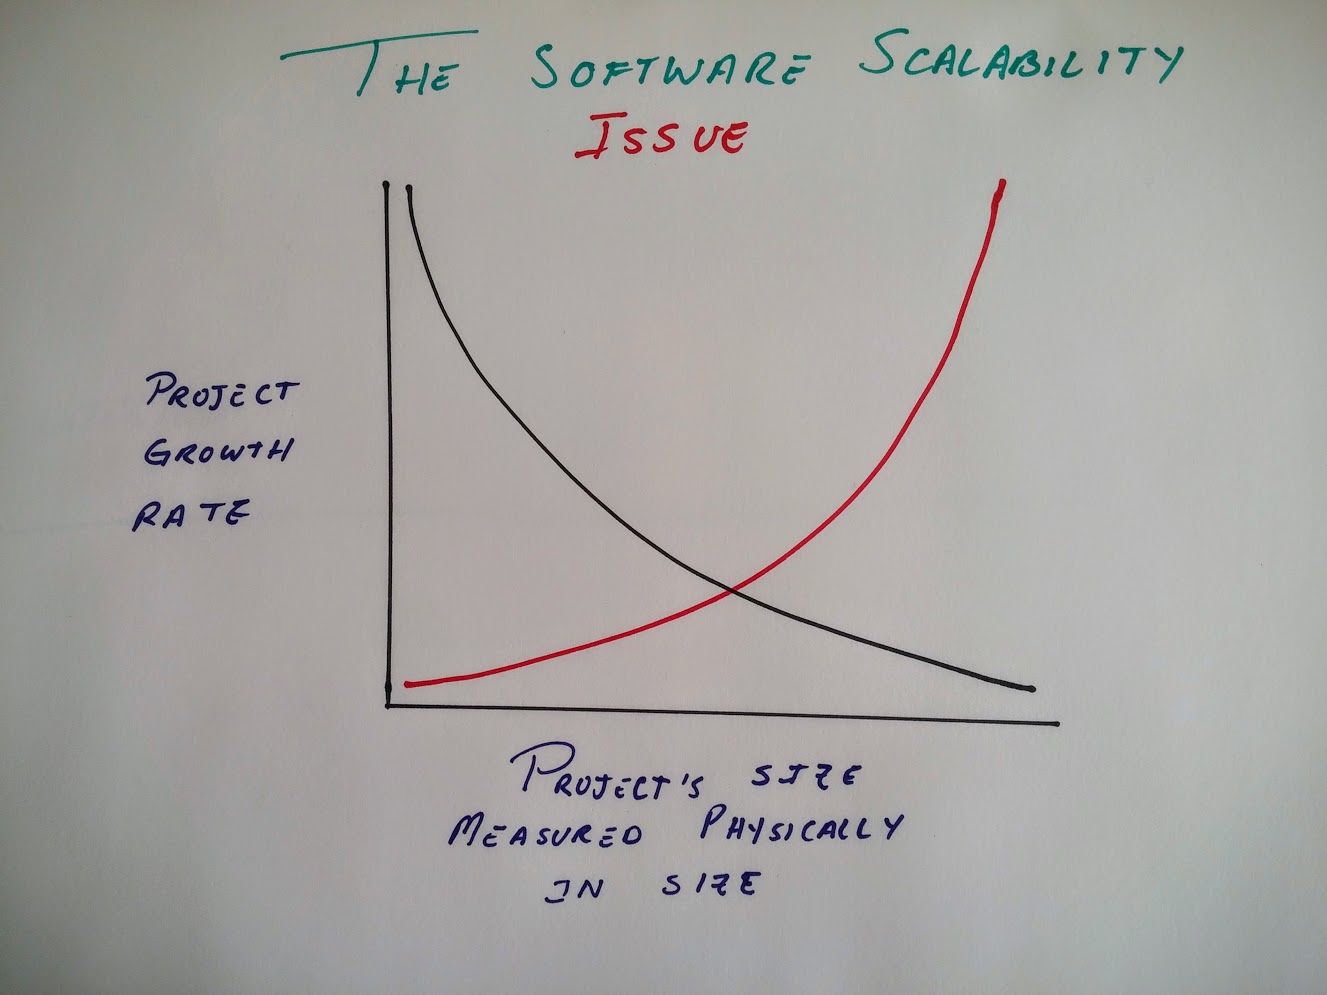 THE SOFTWARE SCALABILITY
ISSUE
PROJECT
GROWTH
RATE
PROJECT'S SIZE
MEASURED PHYSICALLY
IN SIZE